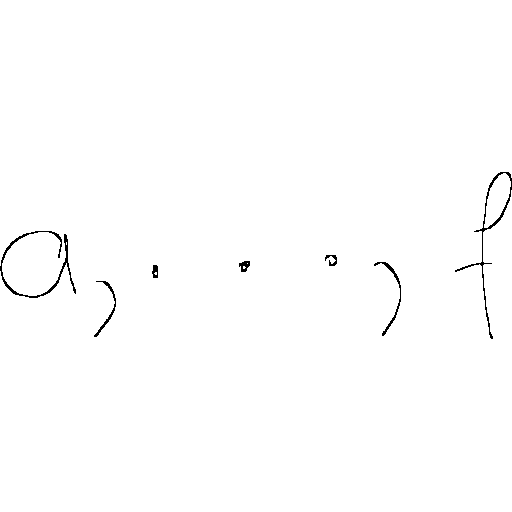 a, . . . , f